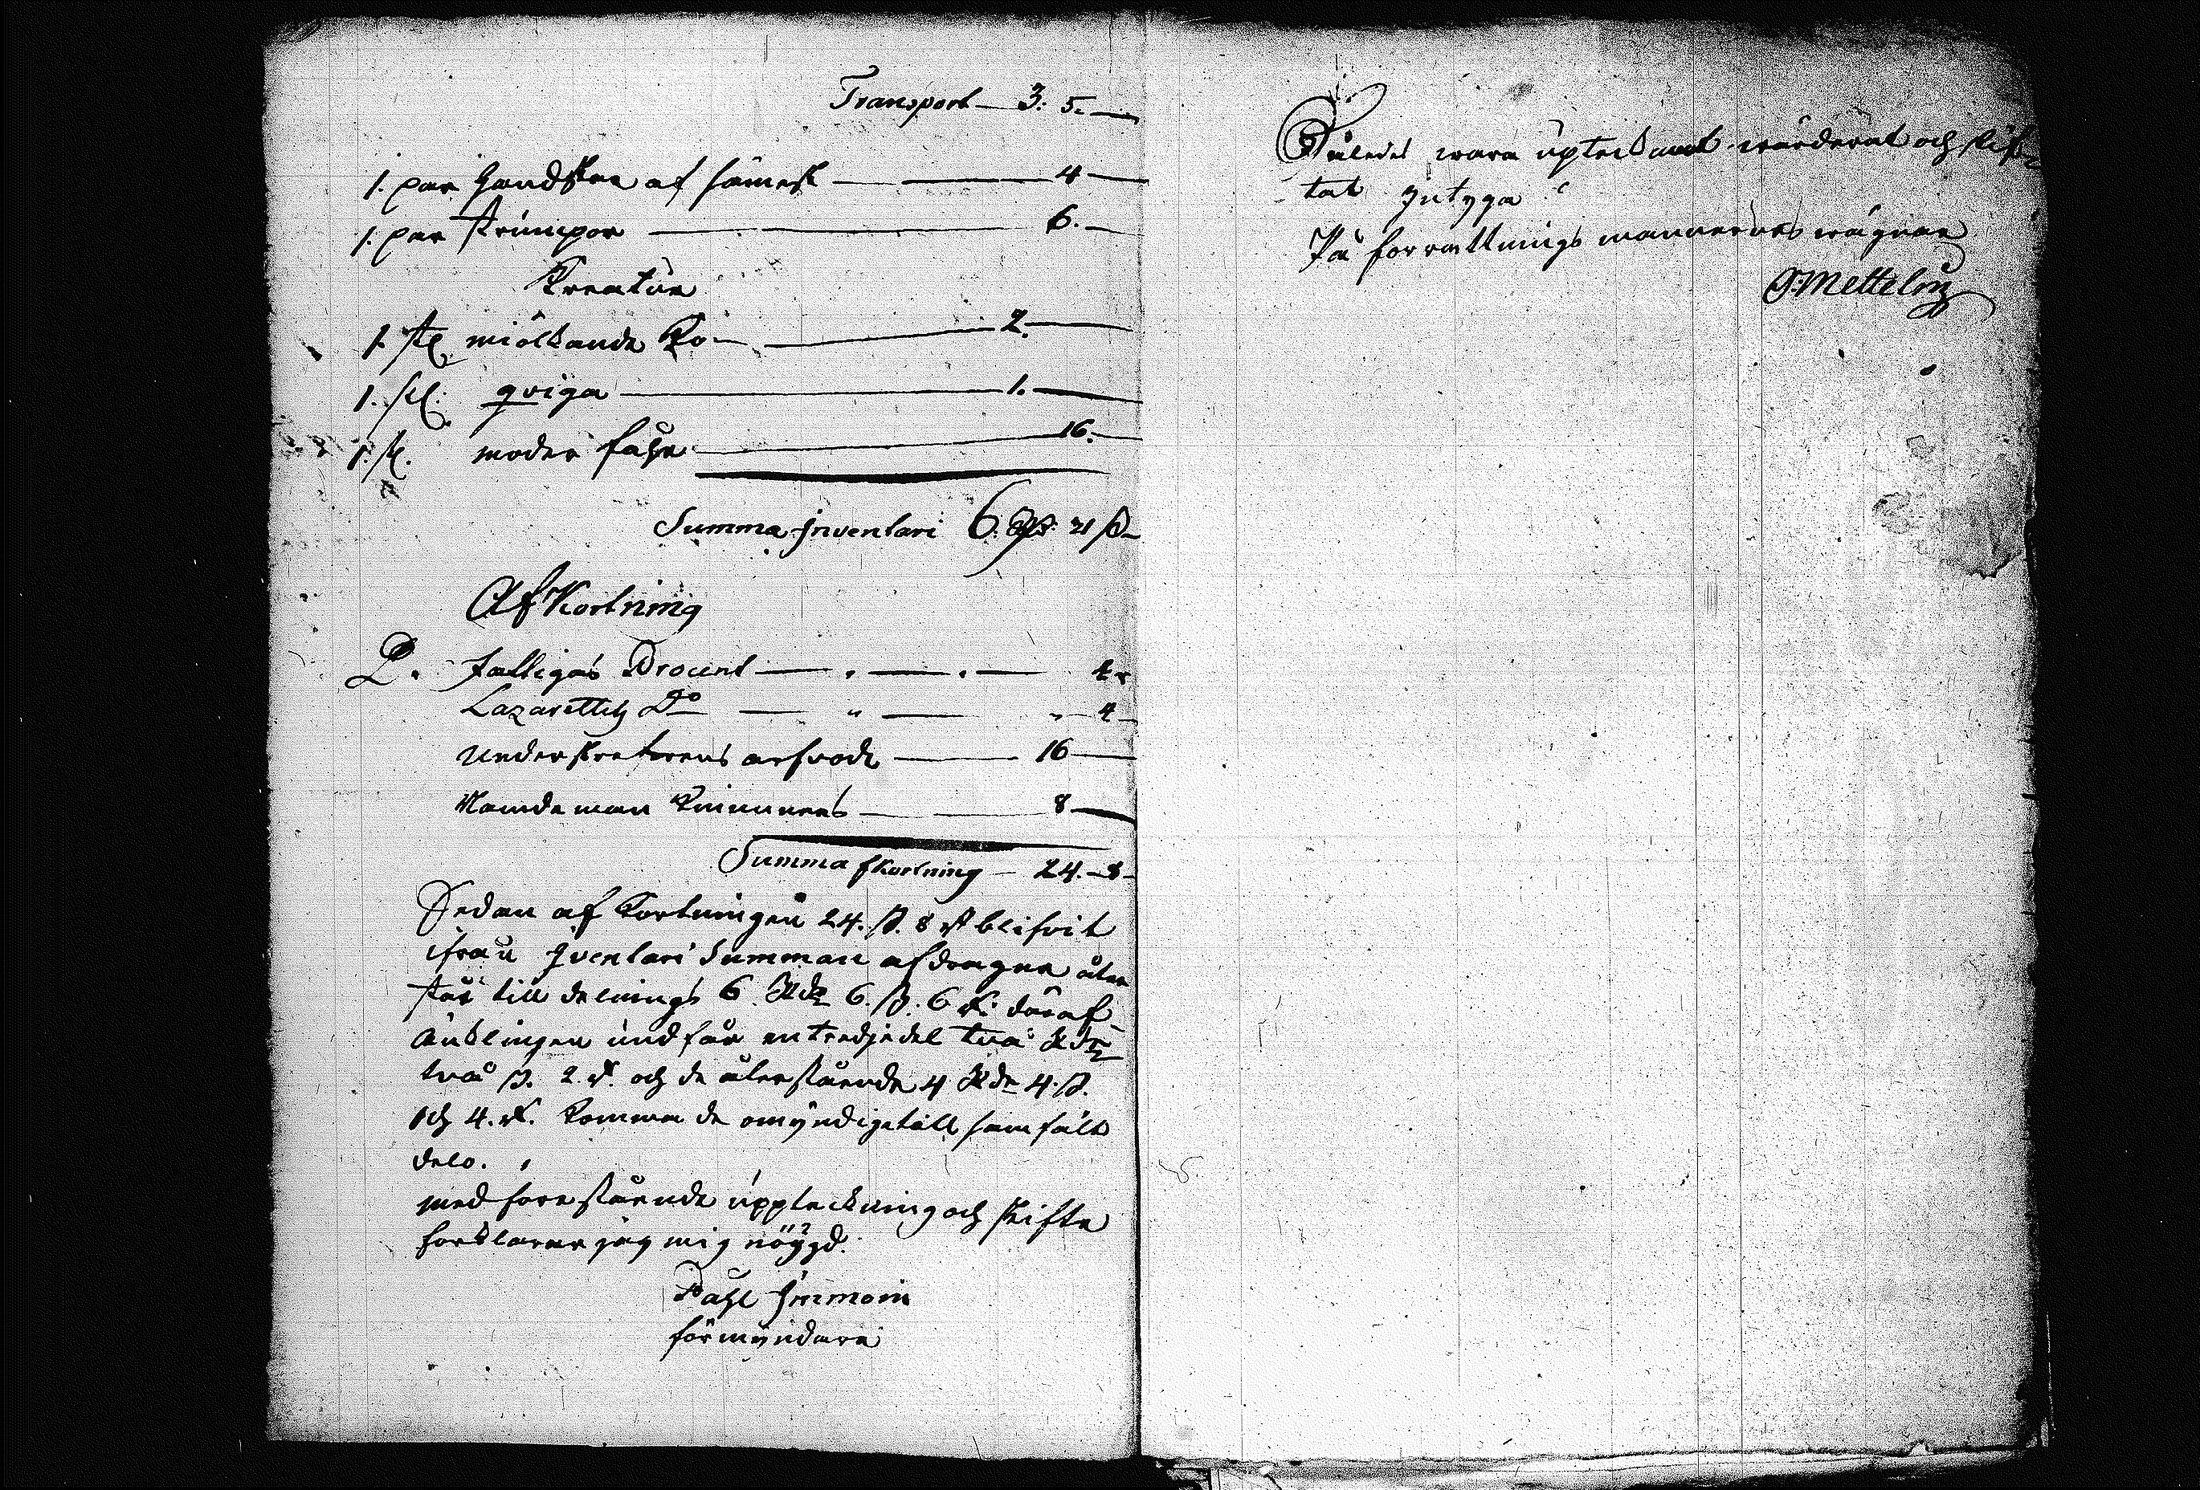 Transport — 3: 5. —
1. par handskar af sämsk — 4 —
1. par strumpor — 6. —
Kreatur
1. st. miölkande Ko — 2. —
1. st: qviga — 1. —
1. st. moder fahr — 16. —
Summa Inventari 6. Rdr: 21 ß —
Af Kortning
Fattigas Procent — 4
Lazarettets Do — 4 —
Underskrefvens arfvode — 16 —
Namdeman — 8 —
Summa fkortning — 24. — 8 —
Sedan af Kortningen 24. ß. 8 rt blifvit
ifrån Iventari Summan afdragne åter
står till delnings 6 Rdr 6. ß. 6 rt. däraf
Änklingen undfår en tredjedel två Rdr
två ß. 2. rt. och de återstående 4 Rdr 4. ß.
och 4. rt. Komma de omyndige till samfält
delo.
med forestående uppteckning och skifte
forklarar jag mig nöygd.
Pahl Immoin
förmyndare
Således vara uptecknat värderat och skif
tat Intyga
På forrattnings mannernes vägnar
G: Mettelius